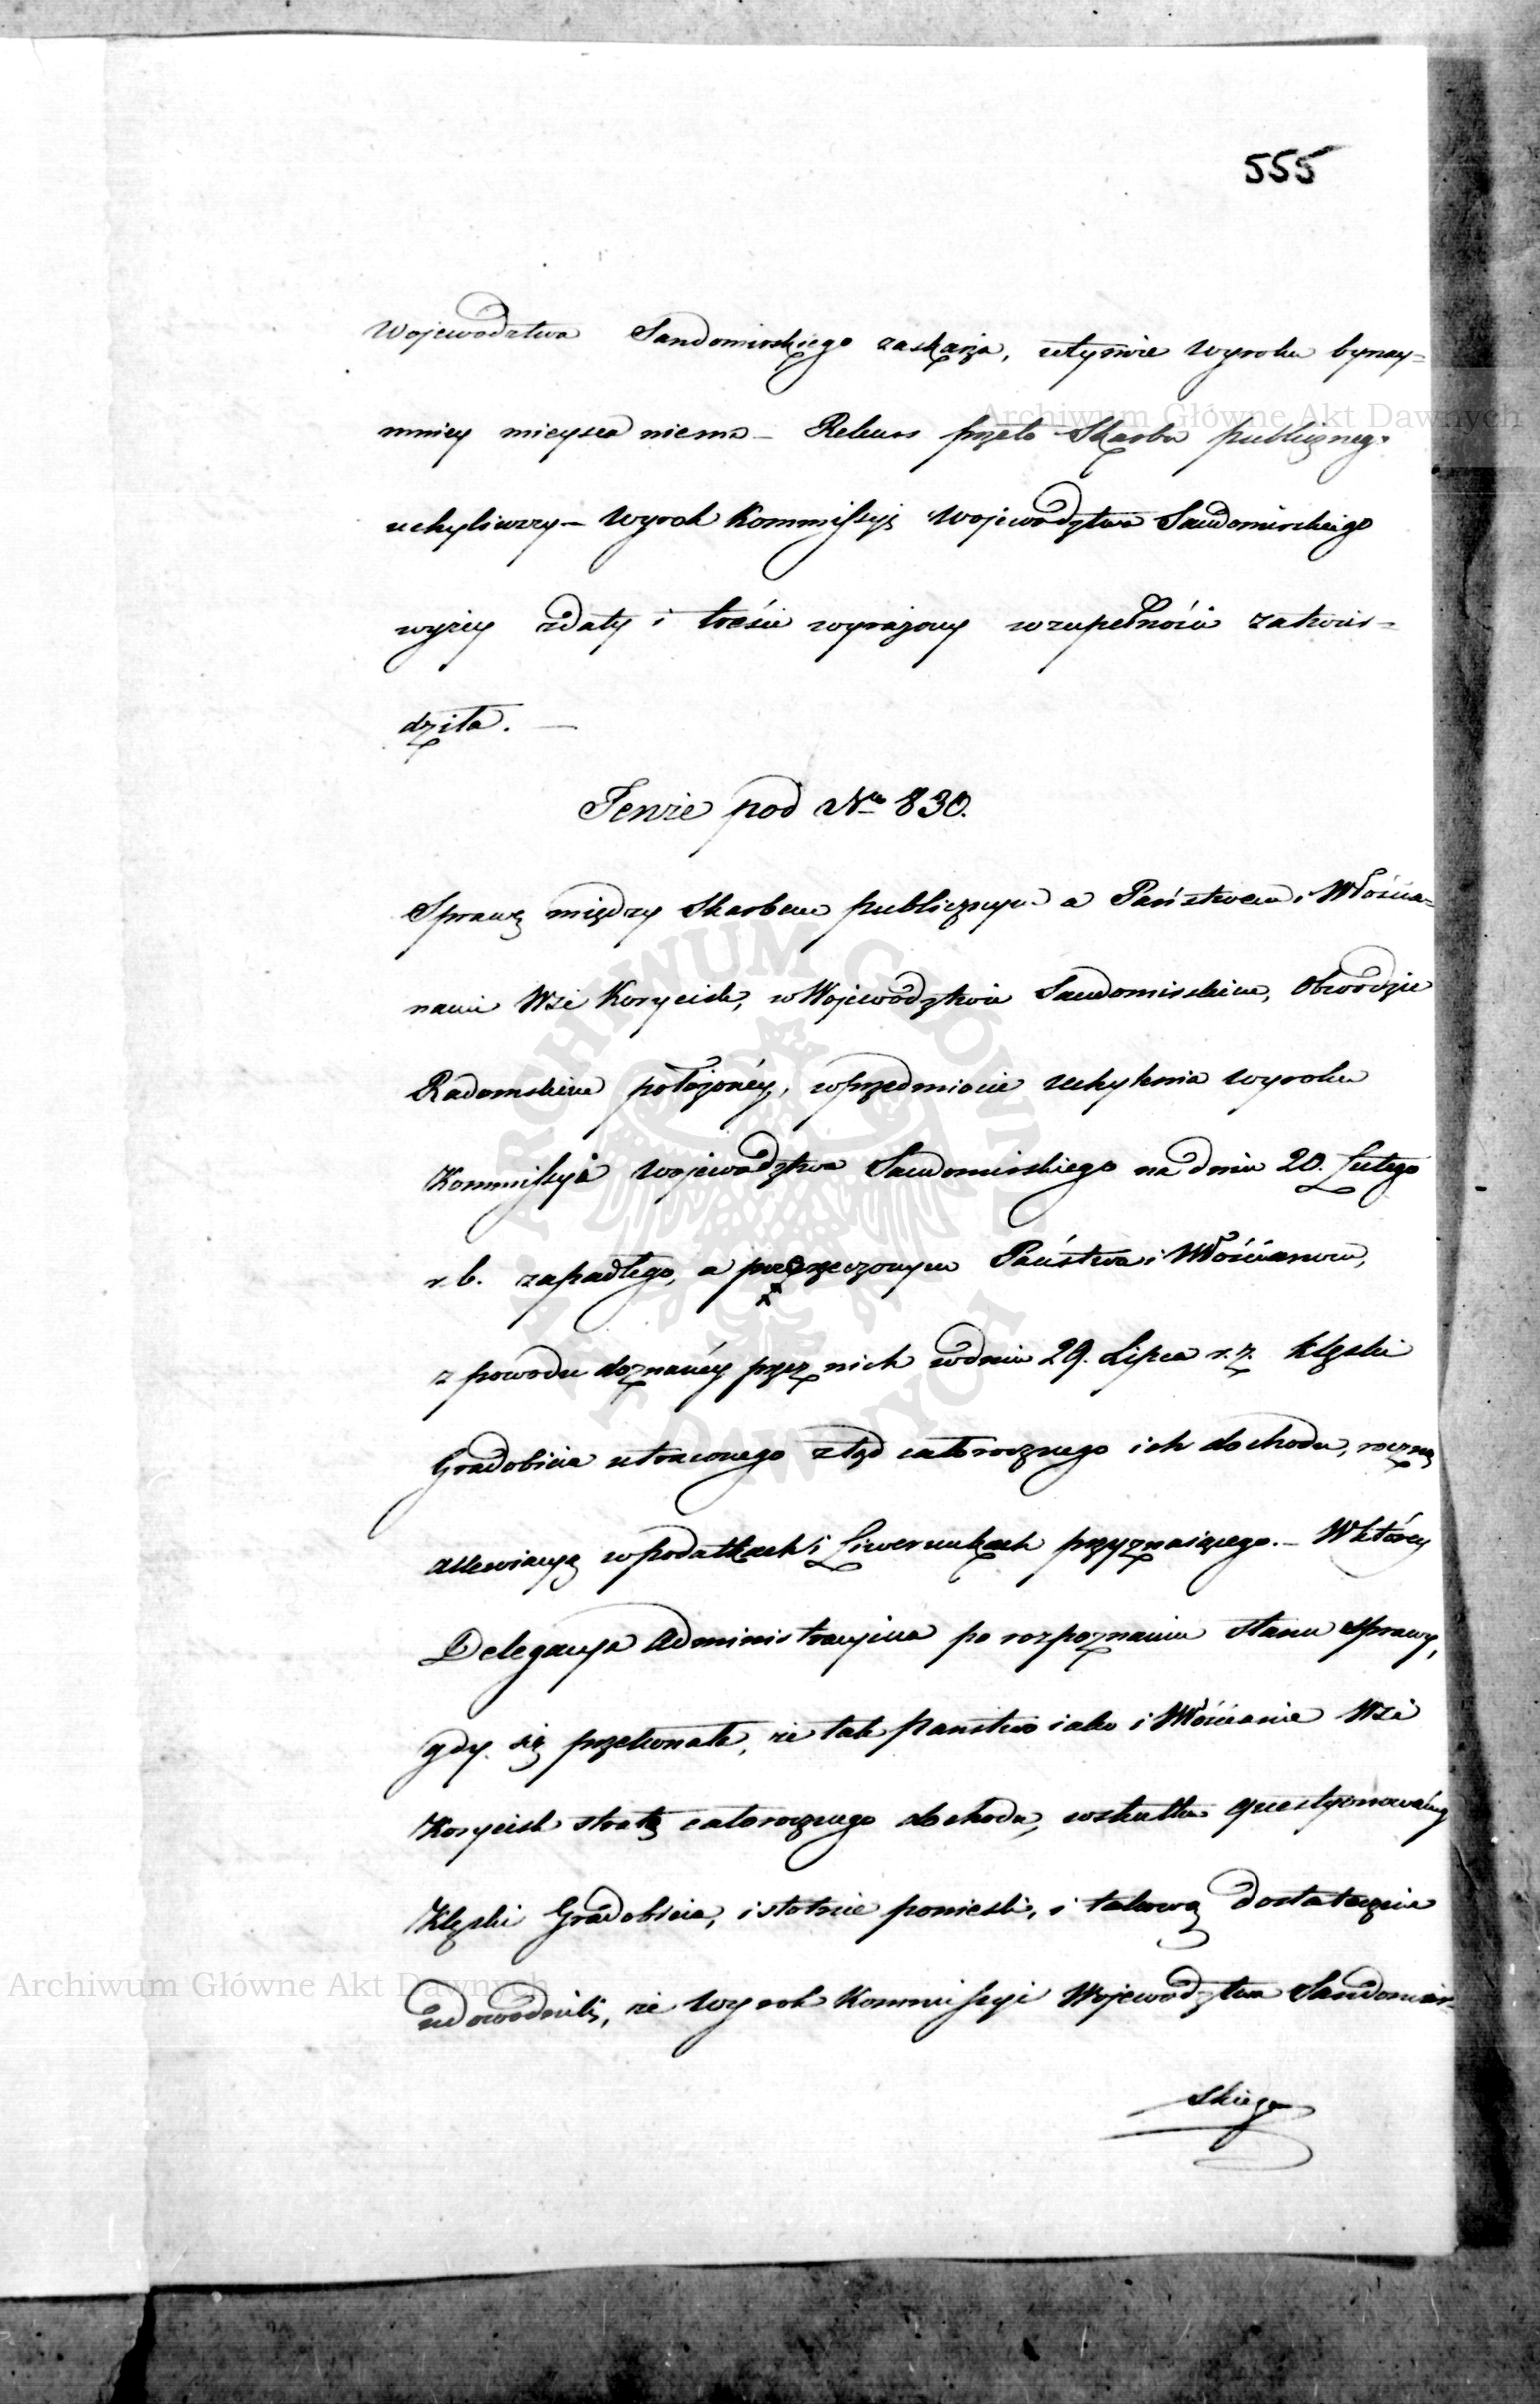 555
Województwa Sandomirskiego zaskarża, wtymże wyroku bynay=
mniey mieysca niema – Rekurs przeto Skarbu publicznego
uchyliwszy – Wyrok Kommissyi Województwa Sandomirskiego
wyżey zdaty i treści wyrażony wzupełności zatwier=
dziła. —
Tenże pod No 830.
Sprawę między Skarbem publicznym a Państwem i Włościa=
nami Wsi Korycisk, w Województwie Sandomirskim, Obwodzie
Radomskim położonéy, wprzedmiocie uchylenia wyroku
Kommissyi Województwa Sandomirskiego na dniu 20. Lutego
r. b. zapadłego, a przerzeczonym Państwu i Włościanom,
z powodu doznanéy przez nich wdniu 29. Lipca r. z. klęski
Gradobicia utraconego ztąd całorocznego ich dochodu, roczną
allewiacyą wpodatkach i Liwerunkach przyznaiącego. – Wktórey
Delegacya Administracyina po rozpoznaniu stanu sprawy,
gdy się przekonała, że tak Państwo iako i Włościanie Wsi
Korycisk stratę całorocznego dochodu, wskutku questyonowanéy
Klęski Gradobicia, istotnie ponieśli, i takową dostatecznie
udowodnili, że Wyrok Kommissyi Województwa Sandomir=
skiego
Archiwum Główne Akt Dawnych
ARCHIWUM GŁÓWNE AKT DAWNYCH
Archiwum Główne Akt Dawnych